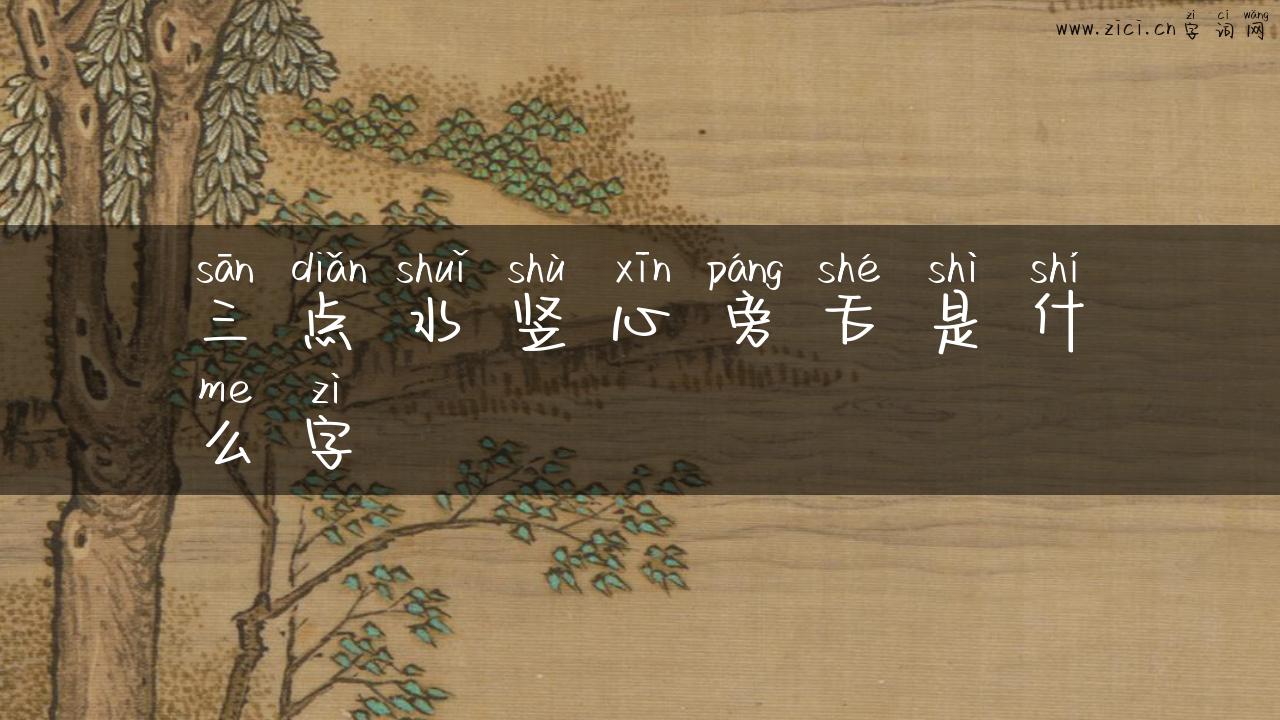 zì cí wǎng
www.zici.cn 字词网
sān diǎn shuǐ shù xīn páng shé shì shí
三点水竖心旁舌是什
me zì
么字